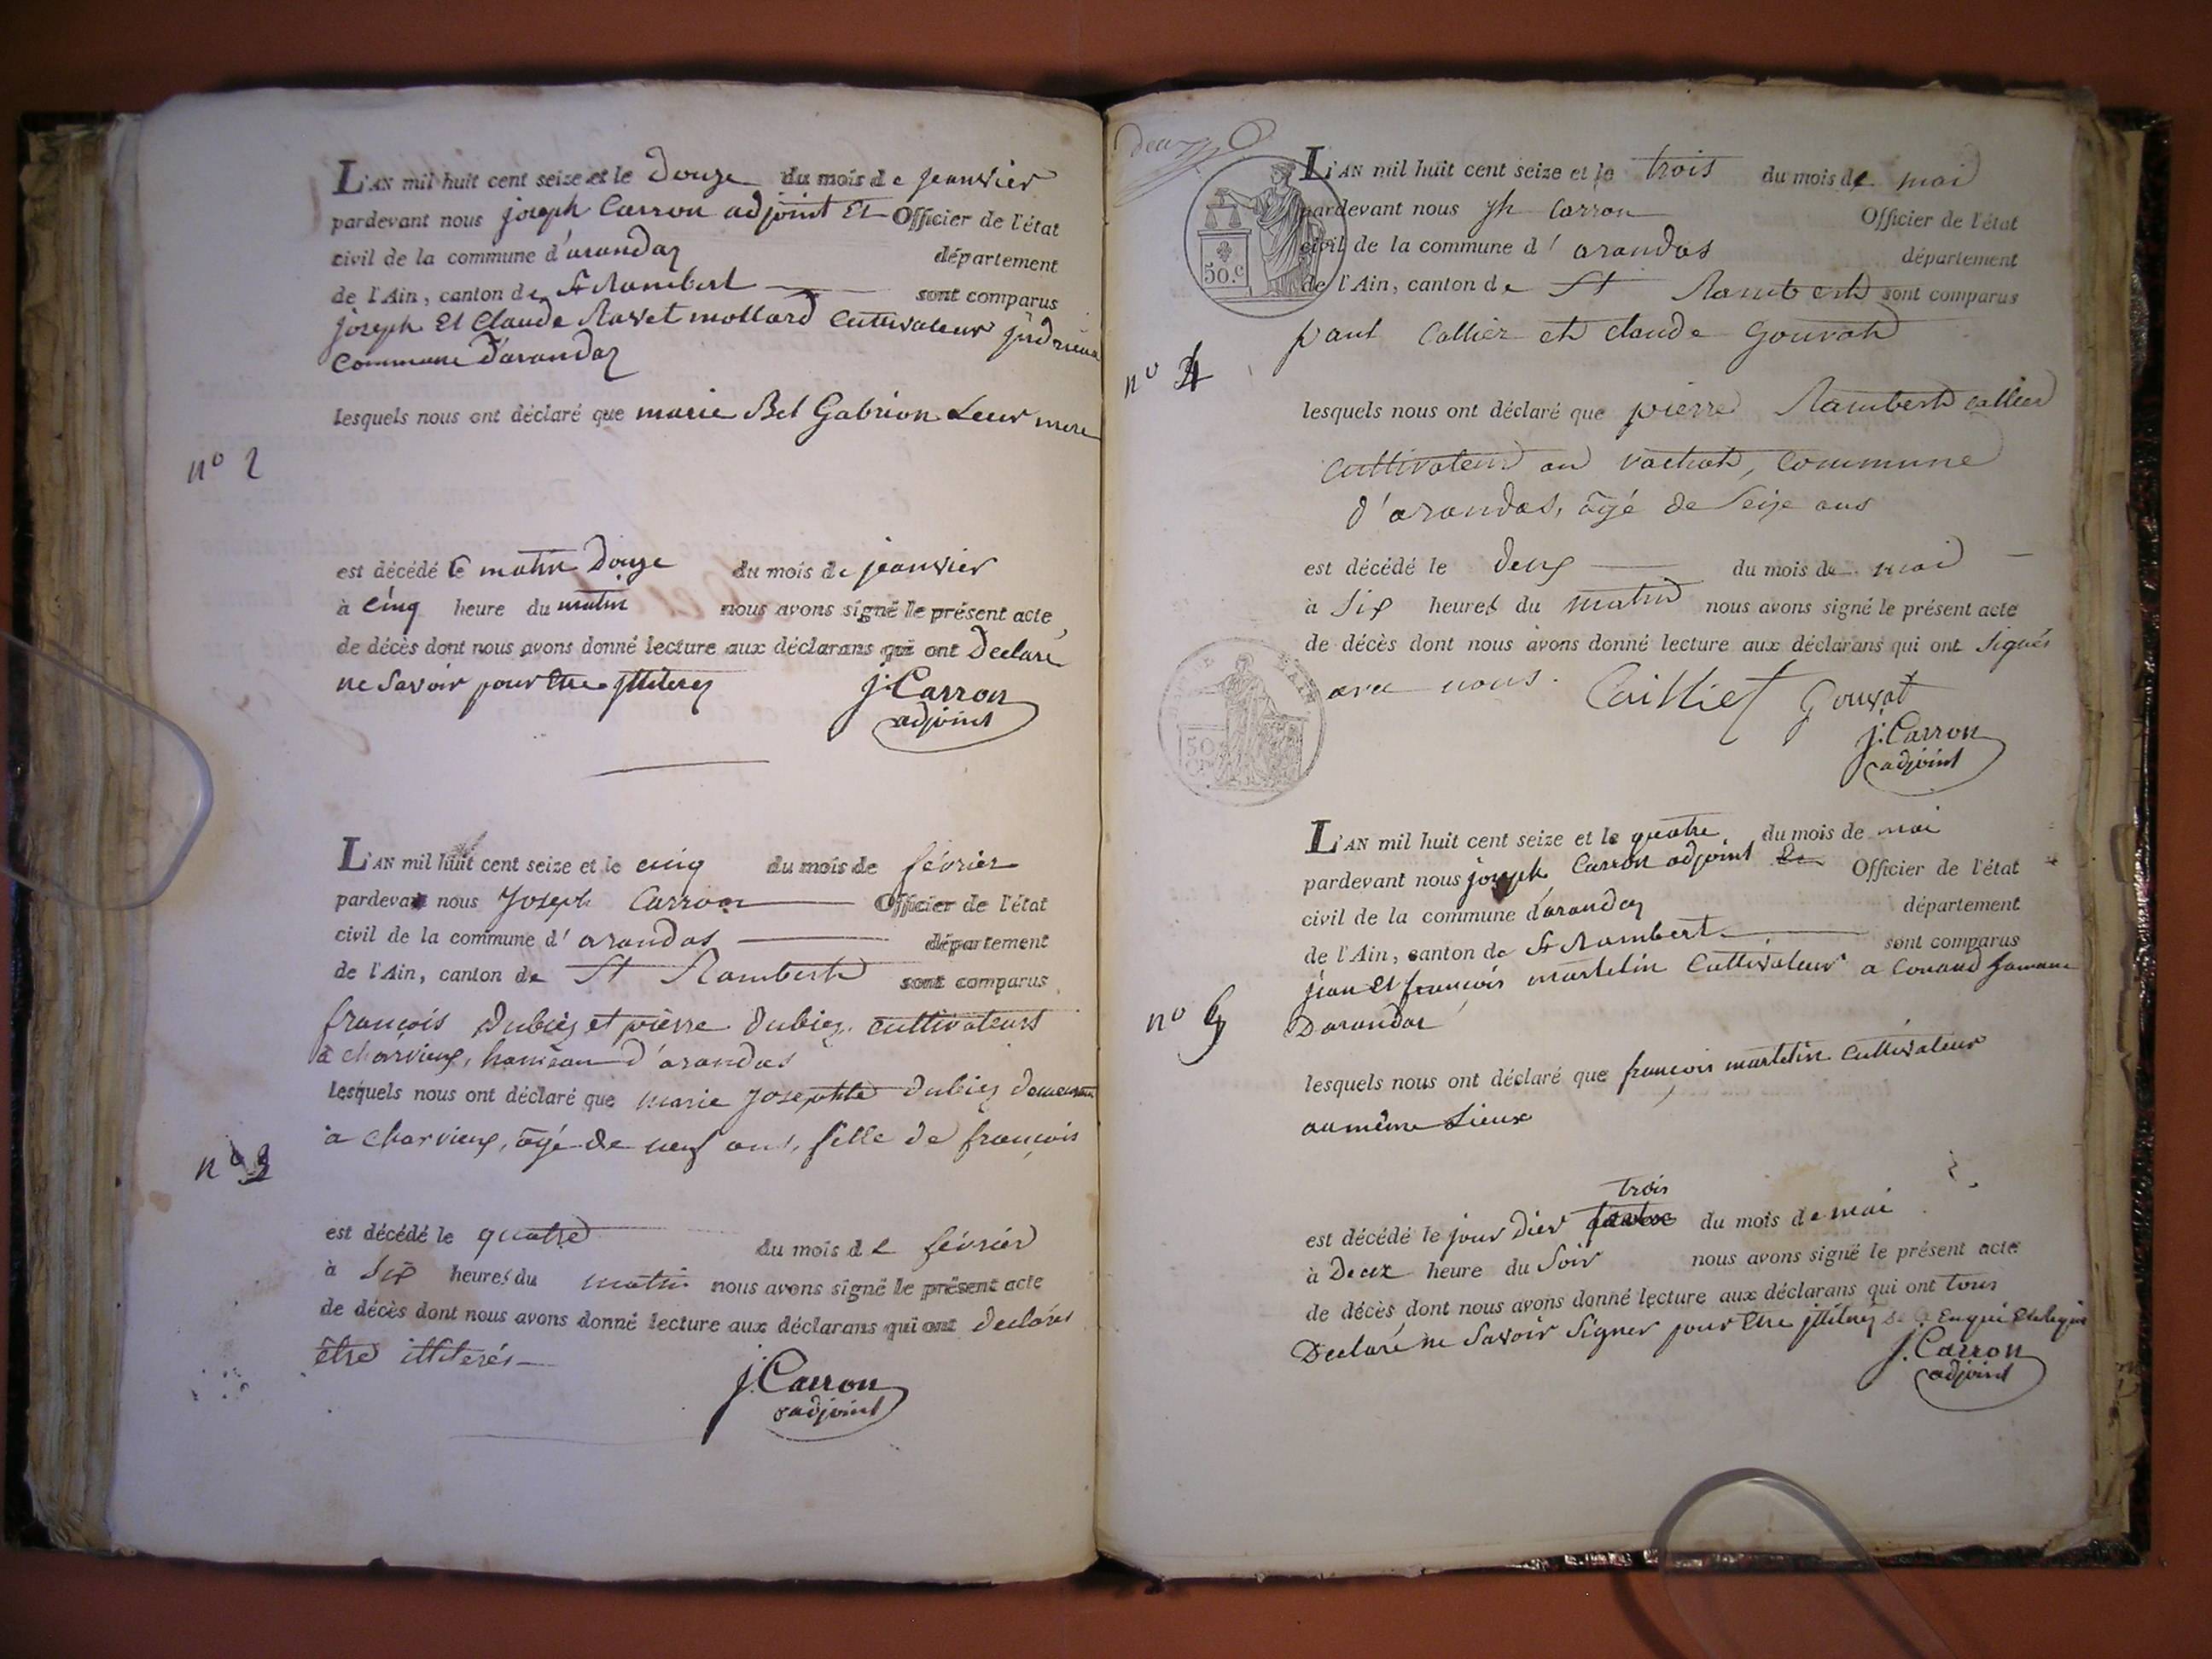 L'AN mil huit cent seize et le Douze du mois de jeanvier
pardevant nous joseph Carron adjoint Et Officier de l'état
civil de la commune d'arandas département
de l'Ain, canton de St Rambert sont comparus
joseph Et Claude Ravet mollard Cultivateur
Commune D'arandas
lesquels nous ont déclaré que marie Bel Gabrion Leur mere
n° 2
est décédé le matin Douze du mois de jeanvier
à Cinq heure du matin nous avons signé le présent acte
de décès dont nous avons donné lecture aux déclarans qui ont Declaré
ne Savoir pour Etre jlliterez
j. Carron
adjoint
L'AN mil huit cent seize et le cinq du mois de février
pardevant nous Joseph Carron Officier de l'état
civil de la commune d'arandas département
de l'Ain, canton de St Rambert sont comparus
françois Dubiez et pierre Dubiez cultivateurs
à charvieux, hameau d'arandas
lesquels nous ont déclaré que marie Josephte Dubiez
à charvieux, âgé de neuf ans, fille de françois
n° 3
est décédé le quatre du mois de février
à Six heures du matin nous avons signé le présent acte
de décès dont nous avons donné lecture aux déclarans qui ont declarés
être illiterés
j. Carron
adjoint
L'AN mil huit cent seize et le trois du mois de mai
50.c
pardevant nous jh Carron Officier de l'état
civil de la commune d'arandas département
de l'Ain, canton de St Rambert sont comparus
paul Callier et claude Gouvat
n° 4
lesquels nous ont déclaré que pierre Rambert callier
cultivateur au vachat, commune
d'arandas, âgé de Seize ans
est décédé le deux du mois de mai
à Six heures du matin nous avons signé le présent acte
de décès dont nous avons donné lecture aux déclarans qui ont signés
avec nous. Cailliet Gouvat
j. Carron
adjoint
L'AN mil huit cent seize et le quatre du mois de mai
pardevant nous joseph Carron adjoint Et Officier de l'état
civil de la commune d'arandas département
de l'Ain, canton de St Rambert sont comparus
jean Et françois martelin Cultivateur a Conand
D'arandas
n° 5
lesquels nous ont déclaré que françois martelin Cultivateur
au même Lieux
trois
est décédé le jour Dier du mois de mai
à Deux heure du Soir nous avons signé le présent acte
de décès dont nous avons donné lecture aux déclarans qui ont tous
Declaré ne Savoir Signer pour Etre jlliterez
j. Carron
adjoint